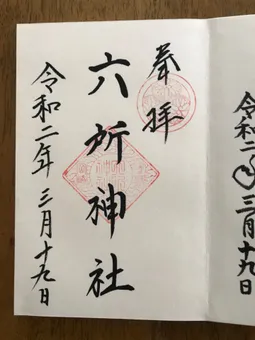 奉拝
六所神社
令和二年 三月十九日
令和二年 三月十九日